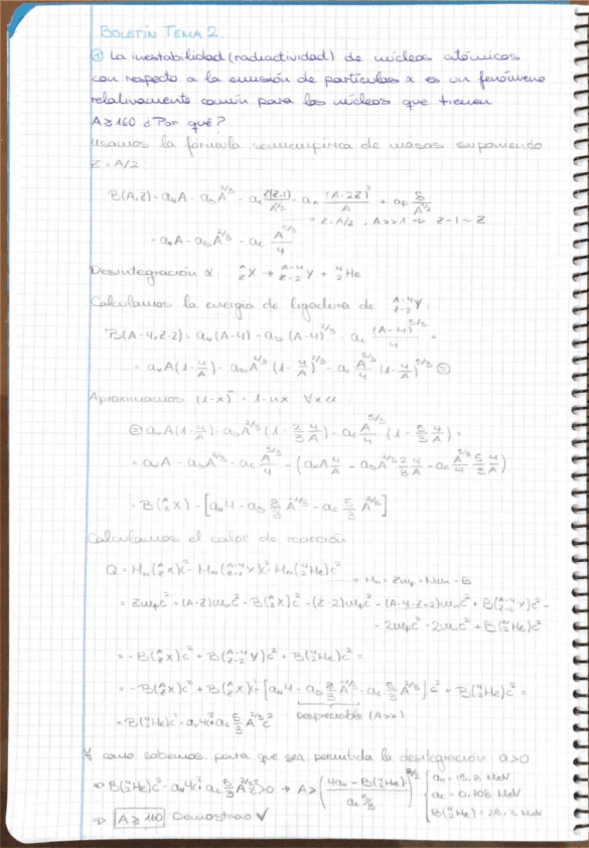 BOLETÍN TEMA 2.
① La inestabilidad (radiactividad) de núcleos atómicos
con respecto a la emisión de partículas α es un fenómeno
relativamente común para los núcleos que tienen
A ≥ 160 ¿Por qué?
Usamos la fórmula semiempírica de masas suponiendo
Z = A/2:
B(A,Z) = aᵥA - aₛA^{2/3} - a_c Z(Z-1)/A^{1/3} - aₐ (A-2Z)²/A + aₚ δ/A^{1/2}
→ Z=A/2, A>>1 ⇒ Z-1 ~ Z
= aᵥA - aₛA^{2/3} - a_c A^{5/3}/4
Desintegración α: ^A_Z X → ^{A-4}_{Z-2} Y + ^4_2 He
Calculamos la energía de ligadura de ^{A-4}_{Z-2} Y:
B(A-4, Z-2) = aᵥ(A-4) - aₛ(A-4)^{2/3} - a_c (A-4)^{5/3}/4 =
= aᵥA(1-4/A) - aₛA^{2/3}(1-4/A)^{2/3} - a_c A^{5/3}/4 (1-4/A)^{5/3} ⊜
Aproximamos (1-x)ⁿ = 1-nx ∀x<<
⊜ aᵥA(1-4/A) - aₛA^{2/3}(1-2/3 4/A) - a_c A^{5/3}/4 (1-5/3 4/A) =
= aᵥA - aₛA^{2/3} - a_c A^{5/3}/4 - (aᵥA 4/A - aₛA^{2/3} 2/3 4/A - a_c A^{5/3}/4 5/3 4/A)
= B(^A_Z X) - [aᵥ4 - aₛ 8/3 A^{-1/3} - a_c 5/3 A^{2/3}]
Calculamos el calor de reacción:
Q = Mₙ(^A_Z X)c² - Mₙ(^{A-4}_{Z-2} Y)c² - Mₙ(^4_2 He)c²
→ Mₙ = Zmₚ + Nmₙ - B
= Zmₚc² + (A-Z)mₙc² - B(^A_Z X)c² - (Z-2)mₚc² - (A-4-Z+2)mₙc² + B(^{A-4}_{Z-2} Y)c² -
- 2mₚc² - 2mₙc² + B(^4_2 He)c²
= -B(^A_Z X)c² + B(^{A-4}_{Z-2} Y)c² + B(^4_2 He)c² =
= -B(^A_Z X)c² + B(^A_Z X)c² - [aᵥ4 - aₛ 8/3 A^{-1/3} - a_c 5/3 A^{2/3}]c² + B(^4_2 He)c² =
Despreciable (A>>)
= B(^4_2 He)c² - aᵥ4c² + a_c 5/3 A^{2/3}c²
Y como sabemos, para que sea permitida la desintegración Q>0
⇒ B(^4_2 He)c² - aᵥ4c² + a_c 5/3 A^{2/3}c² > 0 → A ≥ ((4aᵥ - B(^4_2 He))/(a_c 5/3))^{3/2} { aᵥ = 15.8 MeV
a_c = 0.708 MeV
B(^4_2 He) = 28.3 MeV
⇒ A ≥ 160 Demostrado ✓